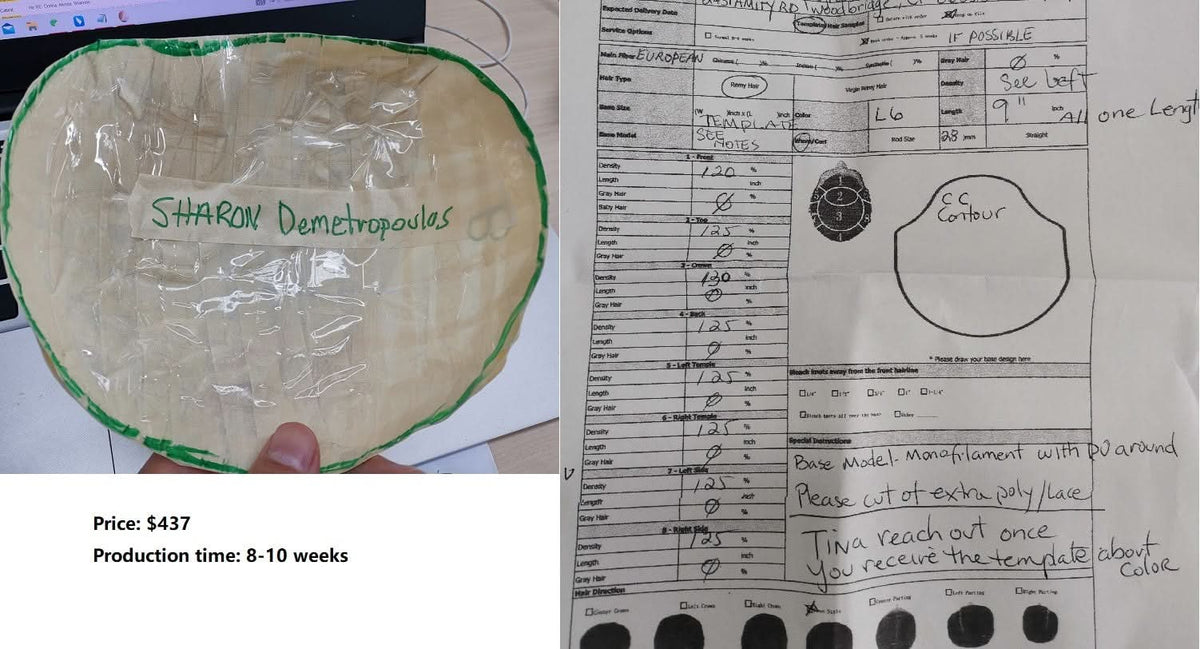 SHARON Demetropoulos
B
Price: $437
Production time: 8-10 weeks
AMITY RD Woodbridge, CT
Expected Delivery Date
Template Hair Samples
Service Options
IF POSSIBLE
Main Fiber EUROPEAN
% Gray Hair Ø %
Hair Type Remy Hair Virgin Remy Hair Density See Left
Base Size inch x (L inch Color L6 Length 9" inch All one Lengt
TEMPLATE
Base Model SEE NOTES Wave/Curl Rod Size 28 mm Straight
1 - Front
Density 120 %
Length inch
Gray Hair Ø %
Baby Hair
2 - Top
Density 125 %
Length inch
Gray Hair Ø %
3 - Crown
Density 130 %
Length inch
Gray Hair Ø %
4 - Back
Density 125 %
Length inch
Gray Hair Ø %
5 - Left Temple
Density 125 %
Length inch
Gray Hair Ø %
6 - Right Temple
Density 125 %
Length inch
Gray Hair Ø %
7 - Left Side
Density 125 %
Length inch
Gray Hair Ø %
8 - Right Side
Density 125 %
Length inch
Gray Hair Ø %
Hair Direction
2
3
CC
Contour
* Please draw your base design here
Bleach knots away from the front hairline
Special Instructions
Base Model- Monofilament with PU around
Please cut of extra poly/Lace
Tina reach out once
You receive the template about
COLOR
Center Crown Left Crown Right Crown Center Parting Left Parting Right Parting